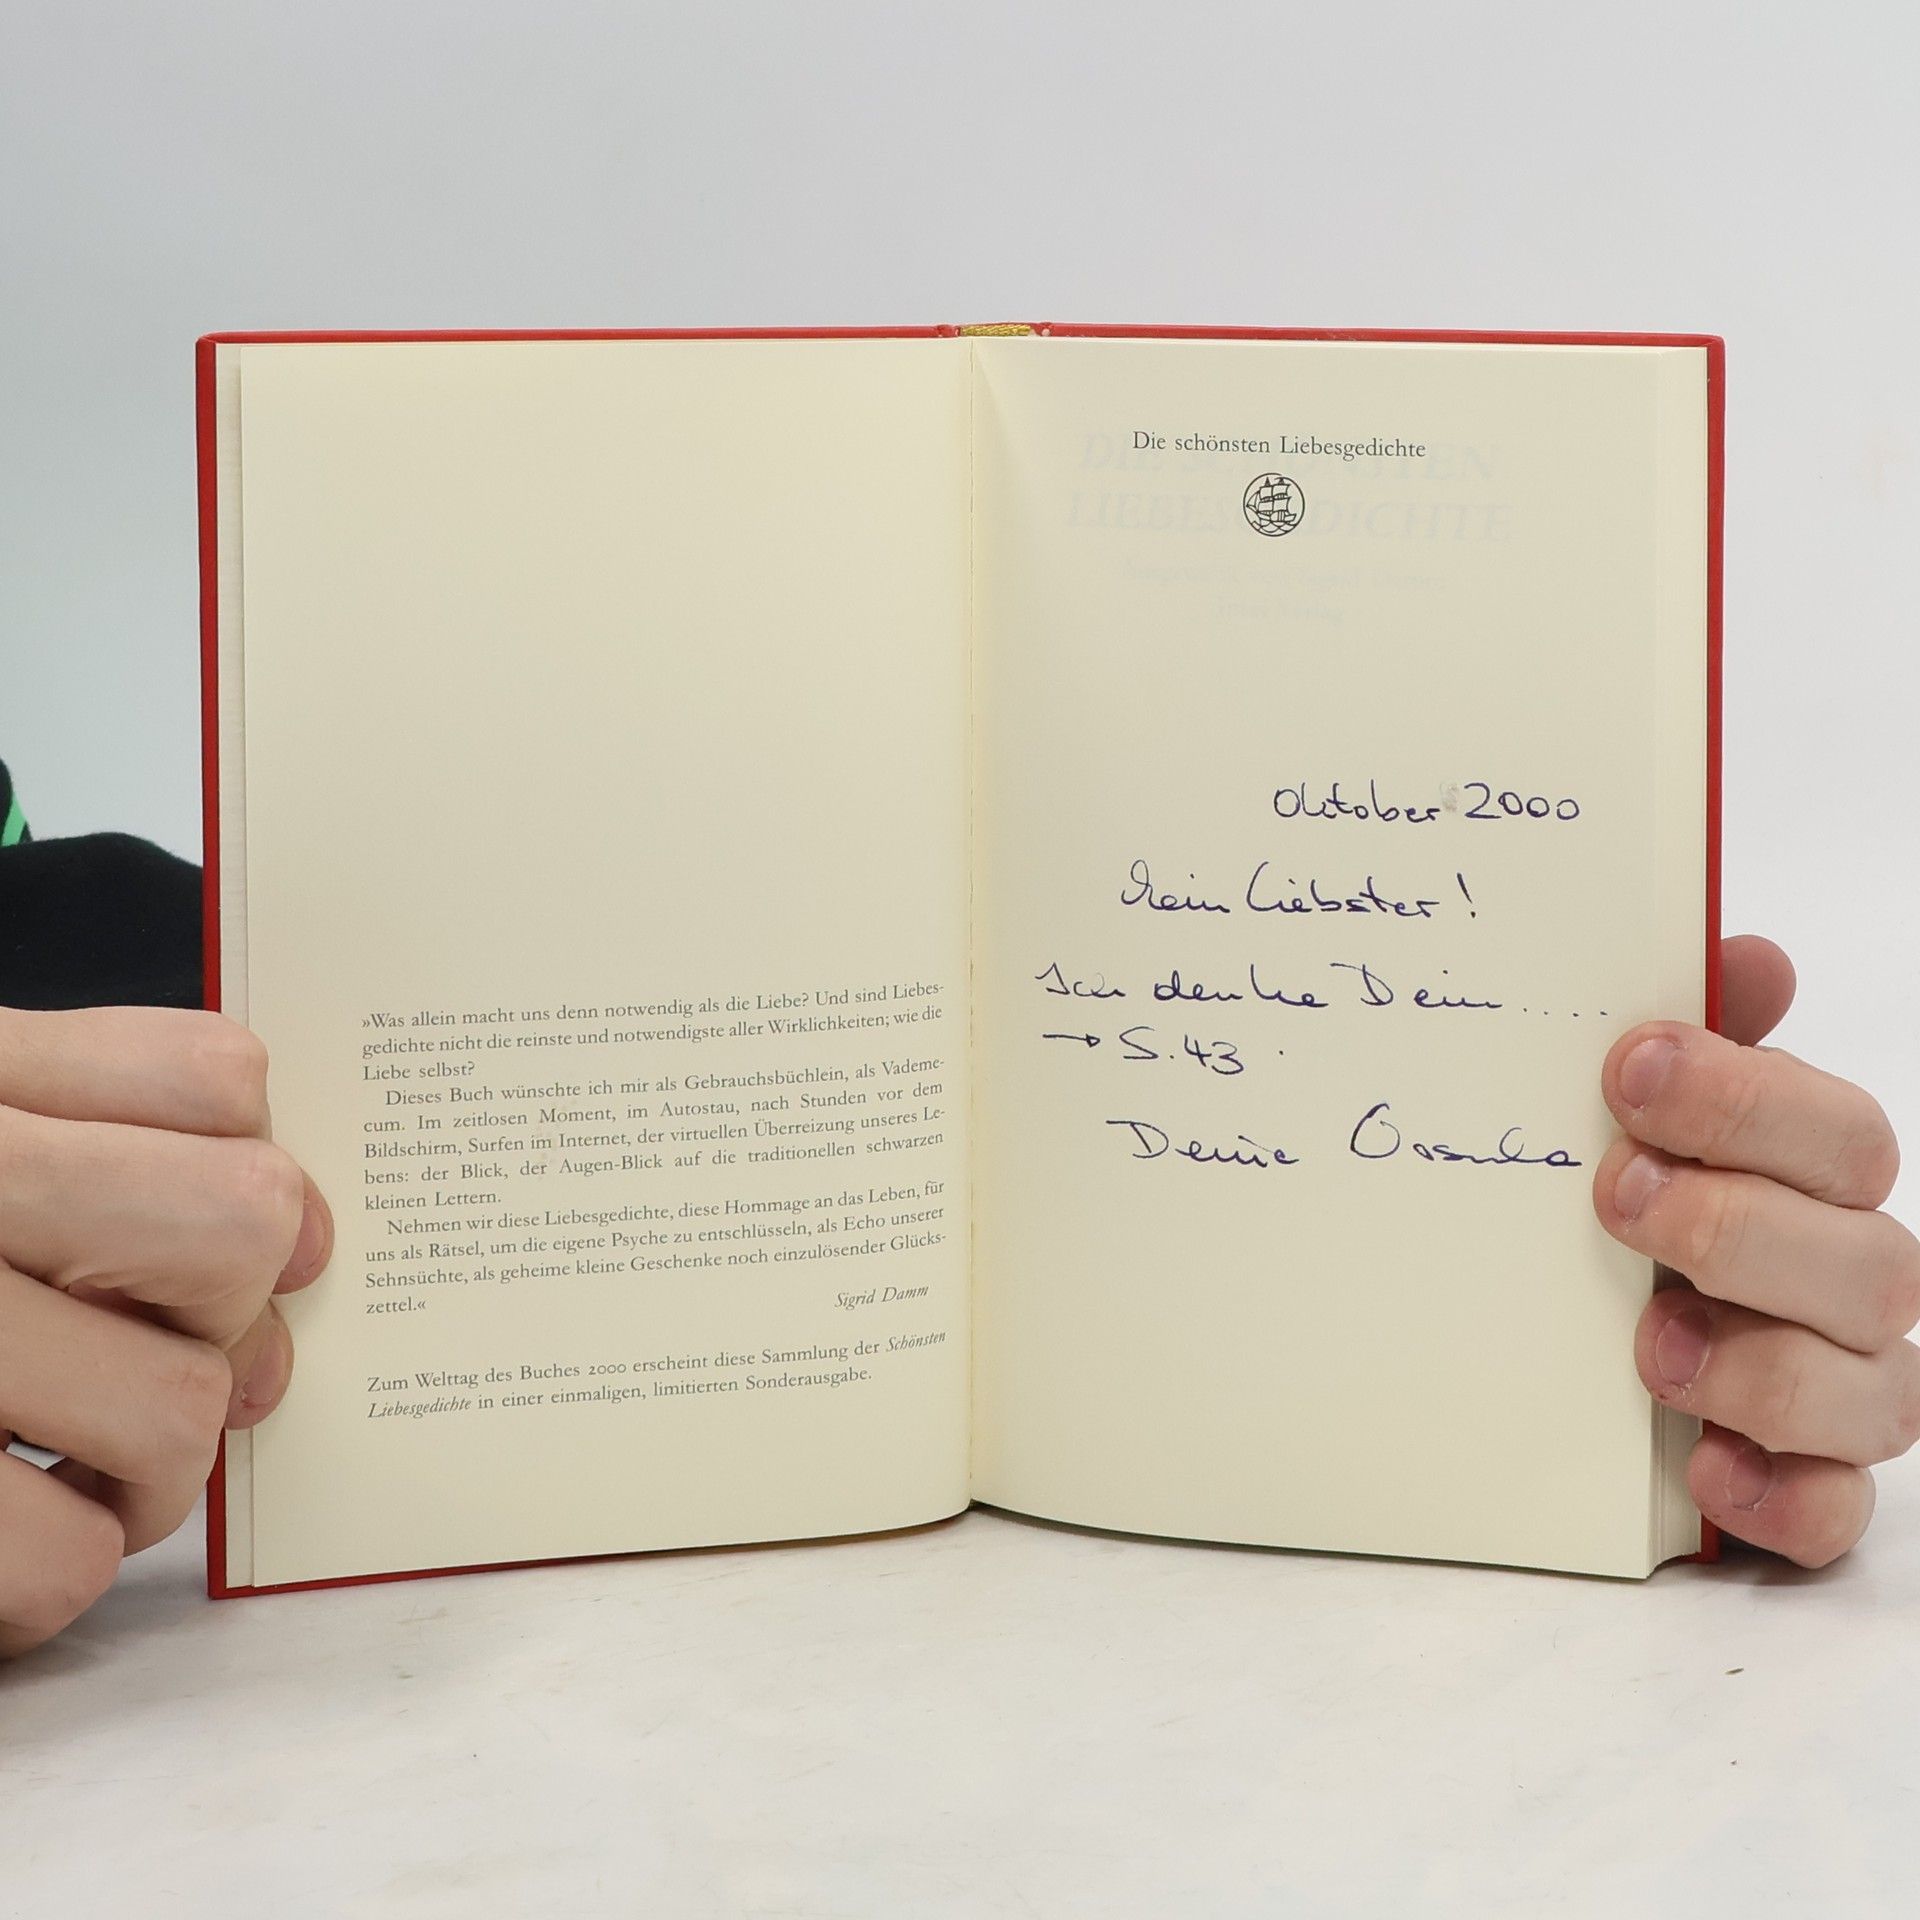 »Was allein macht uns denn notwendig als die Liebe? Und sind Liebes-
gedichte nicht die reinste und notwendigste aller Wirklichkeiten; wie die
Liebe selbst?
Dieses Buch wünschte ich mir als Gebrauchsbüchlein, als Vademe-
cum. Im zeitlosen Moment, im Autostau, nach Stunden vor dem
Bildschirm, Surfen im Internet, der virtuellen Überreizung unseres Le-
bens: der Blick, der Augen-Blick auf die traditionellen schwarzen
kleinen Lettern.
Nehmen wir diese Liebesgedichte, diese Hommage an das Leben, für
uns als Rätsel, um die eigene Psyche zu entschlüsseln, als Echo unserer
Sehnsüchte, als geheime kleine Geschenke noch einzulösender Glücks-
zettel.«
Sigrid Damm
Zum Welttag des Buches 2000 erscheint diese Sammlung der Schönsten
Liebesgedichte in einer einmaligen, limitierten Sonderausgabe.
Die schönsten Liebesgedichte
DIE SCHÖNSTEN
LIEBESGEDICHTE
Ausgewählt von Sigrid Damm
Insel Verlag
Oktober 2000
Mein Liebster!
Ich denke Dein....
→ S. 43.
Deine Ursula